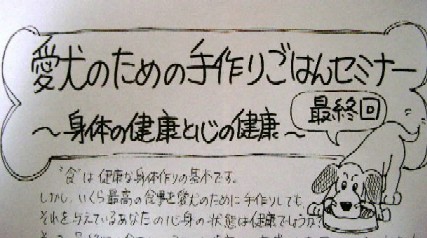 愛犬のための手作りごはんセミナー
～身体の健康と心の健康～
最終回
"食"は健康な身体作りの基本です。
しかし、いくら最高の食事を愛犬のために手作りしても、
それを与えているあなたの心身の状態は健康でしょうか?